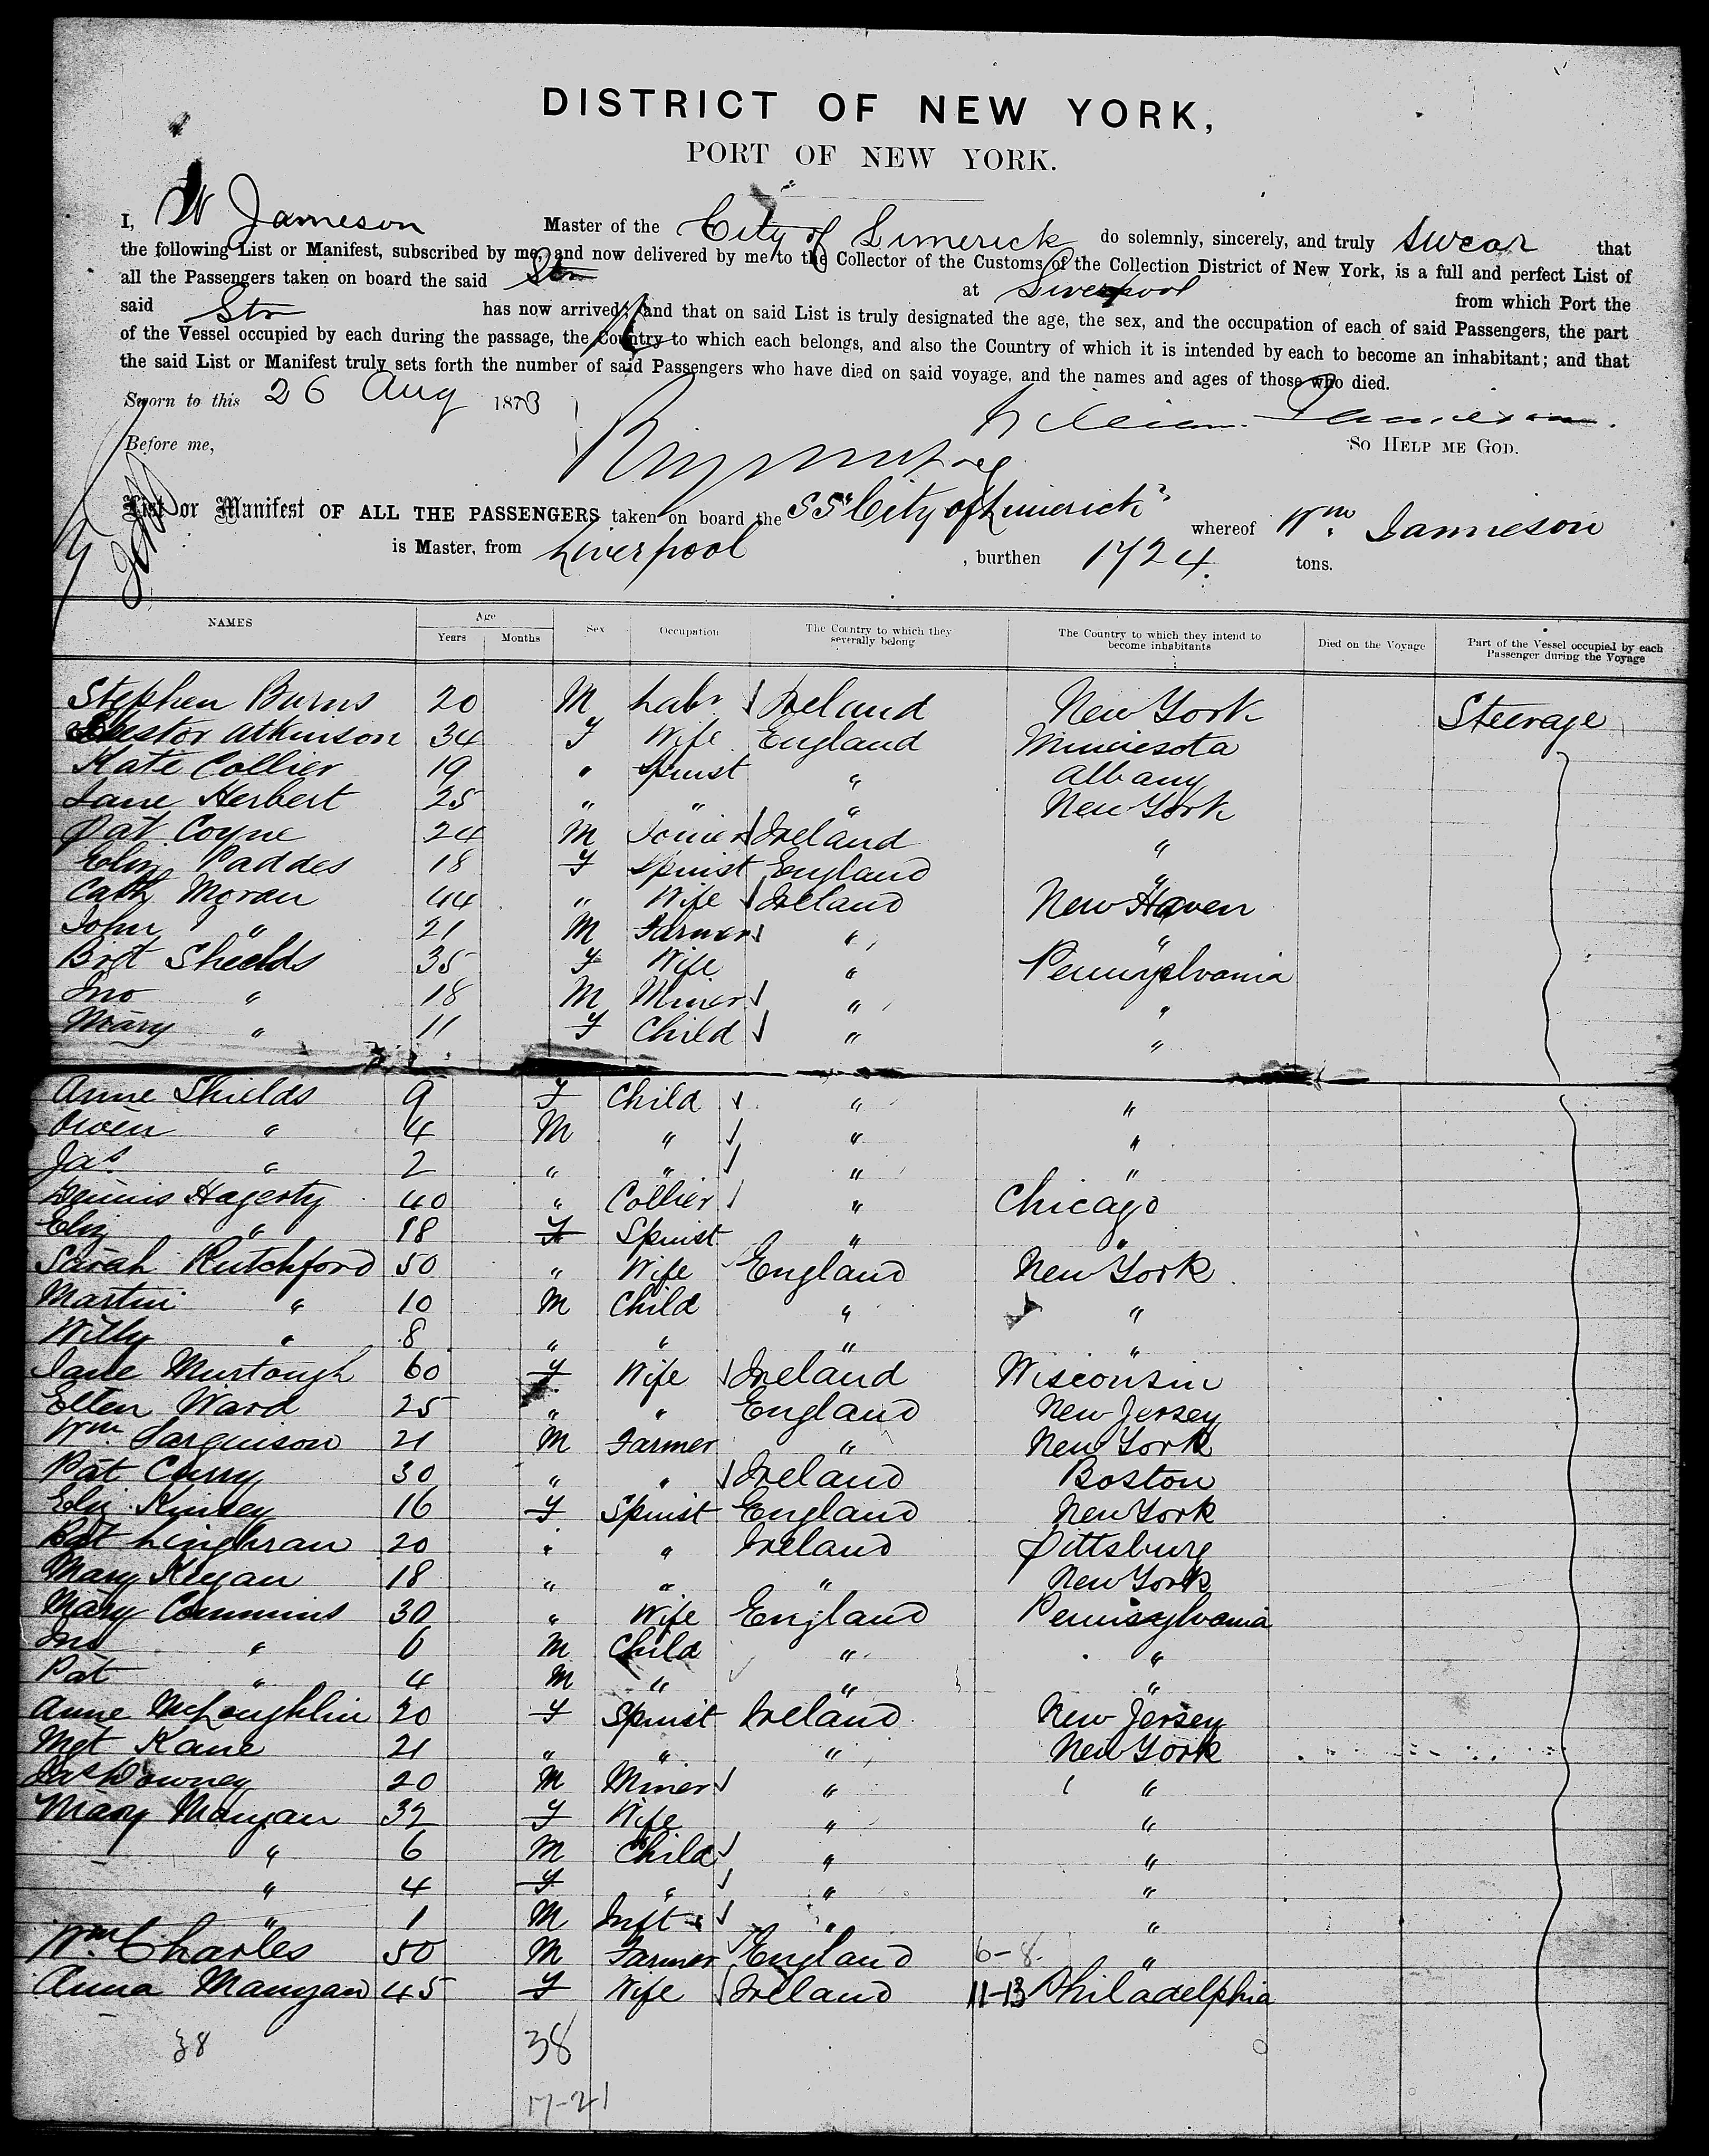 DISTRICT OF NEW YORK,
PORT OF NEW YORK.
I, W Jameson Master of the City of Limerick do solemnly, sincerely, and truly swear that
the following List or Manifest, subscribed by me, and now delivered by me to the Collector of the Customs of the Collection District of New York, is a full and perfect List of
all the Passengers taken on board the said Str at Liverpool from which Port the
said Str has now arrived; and that on said List is truly designated the age, the sex, and the occupation of each of said Passengers, the part
of the Vessel occupied by each during the passage, the Country to which each belongs, and also the Country of which it is intended by each to become an inhabitant; and that
the said List or Manifest truly sets forth the number of said Passengers who have died on said voyage, and the names and ages of those who died.
Sworn to this 26 Aug 1873
Before me, So Help me God.
List or Manifest OF ALL THE PASSENGERS taken on board the SS "City of Limerick" whereof Wm Jamieson
is Master, from Liverpool, burthen 1724 tons.
NAMES Age Years Months Sex Occupation The Country to which they severally belong The Country to which they intend to become inhabitants Died on the Voyage Part of the Vessel occupied by each Passenger during the Voyage
Stephen Burns 20 M Labr Ireland New York Steerage
Atkinson 34 F Wife England Minnesota
Kate Collier 19 " Spinst " Albany
Jane Herbert 25 " " " New York
Pat Coyne 24 M Joiner Ireland "
Eliz Paddes 18 F Spinst England "
Cath Moran 44 " Wife Ireland New Haven
John " 21 M Farmer " "
Brdt Shields 35 F Wife " Pennyslvania
Jno " 18 M Miner " "
Mary " 11 F Child " "
Anne Shields 9 F Child " "
Owen " 4 M " " "
Jas " 2 " " " "
Dennis Hagerty 40 " Collier " Chicago
Eliz " 18 F Spinst " "
Sarah Rutchford 50 " Wife England New York
Martin " 10 M Child " "
Willy " 8 " " " "
Jane Murtough 60 F Wife Ireland Wisconsin
Ellen Ward 25 " " England New Jersey
Wm Sarguison 21 M Farmer " New York
Pat Curry 30 " " Ireland Boston
Eliz Kinsey 16 F Spinst England New York
Bdt Linghran 20 " " Ireland Pittsburg
Mary Kegan 18 " " " New York
Mary Commins 30 " Wife England Pennsylvania
Jno " 6 M Child " "
Pat " 4 M " " "
Anne McLoughlin 20 F Spinst Ireland New Jersey
Mgt Kane 21 " " " New York
Jas Downey 20 M Miner " "
Mary Mangan 32 F Wife " "
" 6 M Child " "
" 4 F " " "
" 1 M Inft " "
Wm Charles 50 M Farmer England 6-8 "
Anna Mangan 45 F Wife Ireland 11-13 Philadelphia
38 38
17-21